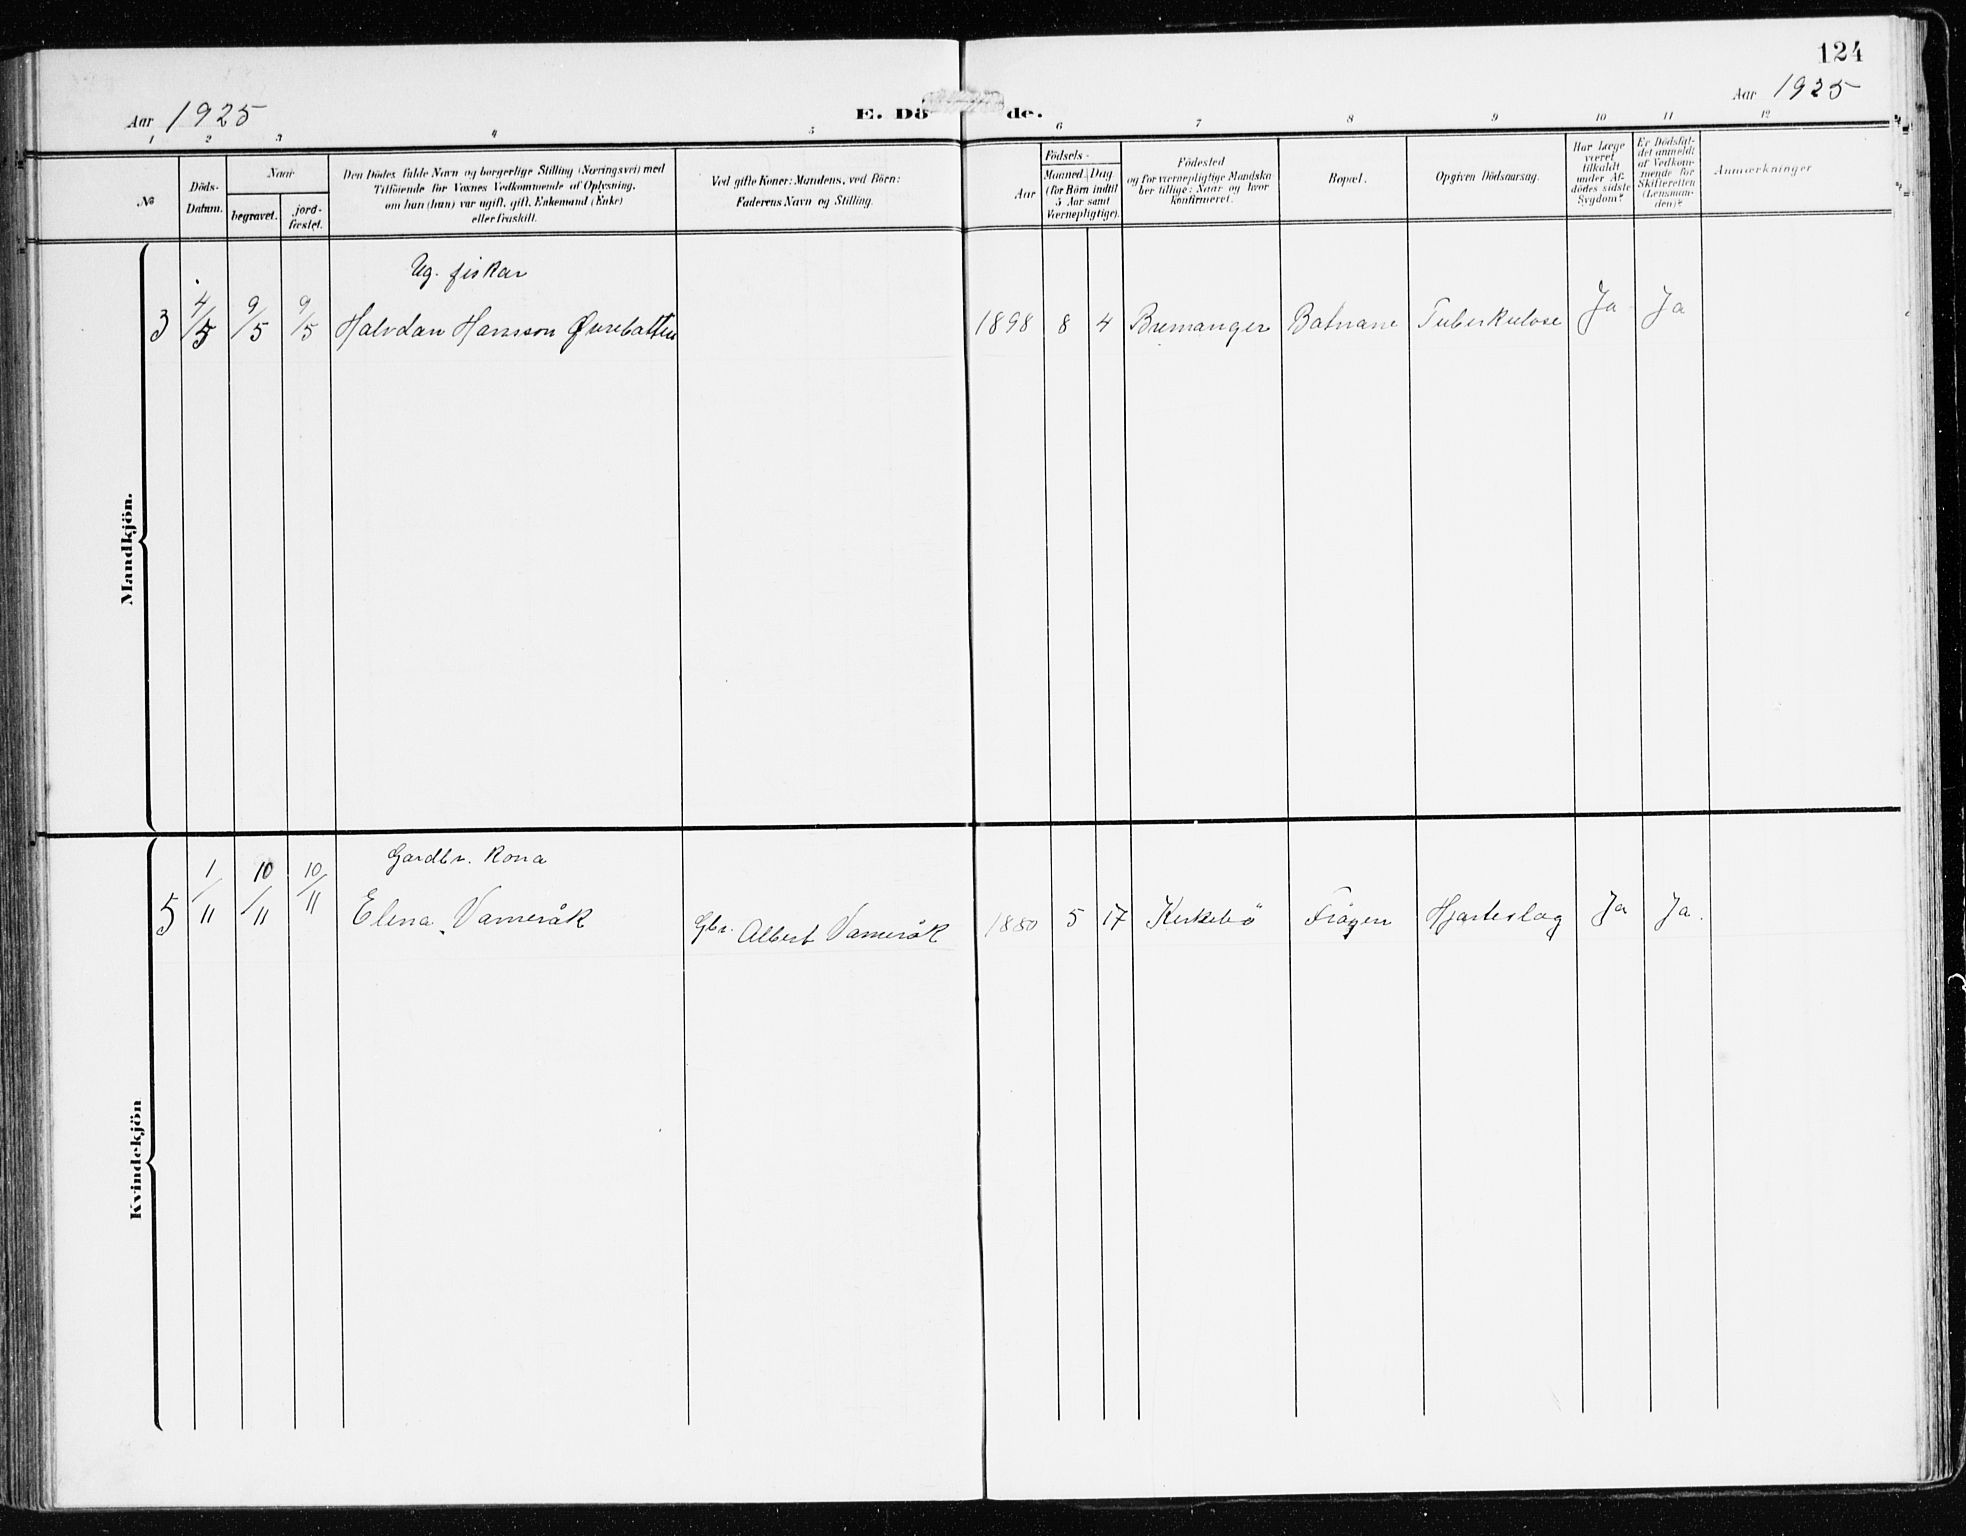 124
Aar 1925
E. Dö de.
Aar 1925
1 2 3 4 5 6 7 8 9 10 11 12
No
Döds-
Datum.
Naar
begravet.
jord-
fæstet.
Den Dödes fulde Navn og borgerlige Stilling (Næringsvei) med
Tilföiende for Voxnes Vedkommende af Oplysning,
om han (hun) var ugift, gift, Enkemand (Enke)
eller fraskilt.
Ved gifte Koner: Mandens, ved Börn:
Faderens Navn og Stilling.
Födsels-
Aar
Maaned Dag
(for Börn indtil
5 Aar samt
Værnepligtige).
Födested
og for værnepligtige Mandska
ber tillige: Naar og hvor
konfirmeret.
Bopæl.
Opgiven Dödsaarsag.
Har Læge
været
tilkaldt
under Af-
dödes sidste
Sygdom?
Er Dödsfal-
det anmeldt
af Vedkom-
mende for
Skifteretten
(Lensman-
den)?
Anmærkninger
Mandkjön.
Ug. fiskar
3 4/5 9/5 9/5 Halvdan Hansson 1898 8 4 Bremanger Batnane Tuberkulose Ja Ja
Kvindekjön
Gardbr. kona
5 1/11 10/11 10/11 Elena Vamråk Gbr. Albert Vamråk 1880 5 17 Kirkebö Hjarteslag Ja Ja.